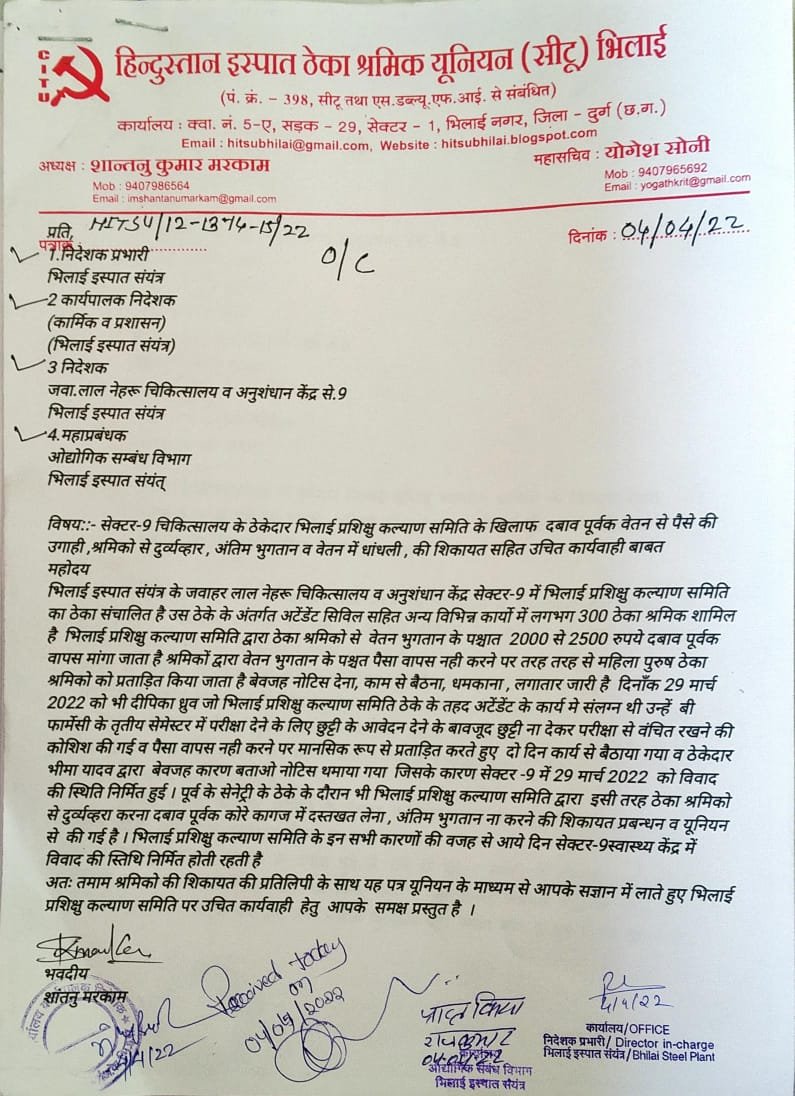 CITU
हिन्दुस्तान इस्पात ठेका श्रमिक यूनियन (सीटू) भिलाई
(पं. क्रं. - 398, सीटू तथा एस.डब्ल्यू.एफ.आई. से संबंधित)
कार्यालय : क्वा. नं. 5-ए, सड़क - 29, सेक्टर - 1, भिलाई नगर, जिला - दुर्ग (छ.ग.)
Email : hitsubhilai@gmail.com, Website : hitsubhilai.blogspot.com
अध्यक्ष : शान्तनु कुमार मरकाम
Mob : 9407986564
Email : imshantanumarkam@gmail.com
महासचिव : योगेश सोनी
Mob : 9407965692
Email : yogathkrit@gmail.com
प्रति,
पत्रांक HITSU/12-1374-15/22
दिनांक : 04/04/22
O/C
1.निदेशक प्रभारी
भिलाई इस्पात संयंत्र
2 कार्यपालक निदेशक
(कार्मिक व प्रशासन)
(भिलाई इस्पात संयंत्र)
3 निदेशक
जवा.लाल नेहरू चिकित्सालय व अनुशंधान केंद्र से.9
भिलाई इस्पात संयंत्र
4.महाप्रबंधक
ओद्योगिक सम्बंध विभाग
भिलाई इस्पात संयंत्
विषय::- सेक्टर-9 चिकित्सालय के ठेकेदार भिलाई प्रशिक्षु कल्याण समिति के खिलाफ दबाव पूर्वक वेतन से पैसे की
उगाही ,श्रमिको से दुर्व्यव्हार , अंतिम भुगतान व वेतन में धांधली , की शिकायत सहित उचित कार्यवाही बाबत
महोदय
भिलाई इस्पात संयंत्र के जवाहर लाल नेहरू चिकित्सालय व अनुशंधान केंद्र सेक्टर-9 में भिलाई प्रशिक्षु कल्याण समिति
का ठेका संचालित है उस ठेके के अंतर्गत अटेंडेंट सिविल सहित अन्य विभिन्न कार्यो में लगभग 300 ठेका श्रमिक शामिल
है भिलाई प्रशिक्षु कल्याण समिति द्वारा ठेका श्रमिको से वेतन भुगतान के पश्चात 2000 से 2500 रुपये दबाव पूर्वक
वापस मांगा जाता है श्रमिकों द्वारा वेतन भुगतान के पश्चत पैसा वापस नही करने पर तरह तरह से महिला पुरुष ठेका
श्रमिको को प्रताड़ित किया जाता है बेवजह नोटिस देना, काम से बैठना, धमकाना , लगातार जारी है दिनाँक 29 मार्च
2022 को भी दीपिका ध्रुव जो भिलाई प्रशिक्षु कल्याण समिति ठेके के तहद अटेंडेंट के कार्य मे संलग्न थी उन्हें बी
फार्मेसी के तृतीय सेमेस्टर में परीक्षा देने के लिए छुट्टी के आवेदन देने के बावजूद छुट्टी ना देकर परीक्षा से वंचित रखने की
कोशिश की गई व पैसा वापस नही करने पर मानसिक रूप से प्रताड़ित करते हुए दो दिन कार्य से बैठाया गया व ठेकेदार
भीमा यादव द्वारा बेवजह कारण बताओ नोटिस थमाया गया जिसके कारण सेक्टर -9 में 29 मार्च 2022 को विवाद
की स्थिति निर्मित हुई । पूर्व के सेनेट्री के ठेके के दौरान भी भिलाई प्रशिक्षु कल्याण समिति द्वारा इसी तरह ठेका श्रमिको
से दुर्व्यव्हरा करना दबाव पूर्वक कोरे कागज में दस्तखत लेना , अंतिम भुगतान ना करने की शिकायत प्रबन्धन व यूनियन
से की गई है । भिलाई प्रशिक्षु कल्याण समिति के इन सभी कारणों की वजह से आये दिन सेक्टर-9स्वास्थ्य केंद्र में
विवाद की स्तिथि निर्मित होती रहती है
अतः तमाम श्रमिको की शिकायत की प्रतिलिपी के साथ यह पत्र यूनियन के माध्यम से आपके सज्ञान में लाते हुए भिलाई
प्रशिक्षु कल्याण समिति पर उचित कार्यवाही हेतु आपके समक्ष प्रस्तुत है ।
भवदीय
शांतनु मरकाम
Received today
on
04/04/2022
प्राप्त किया
राजकुमार
04-04-22
औद्योगिक संबंध विभाग
भिलाई इस्पात संयंत्र
4/4/22
कार्यालय/OFFICE
निदेशक प्रभारी/ Director in-charge
भिलाई इस्पात संयंत्र/Bhilai Steel Plant